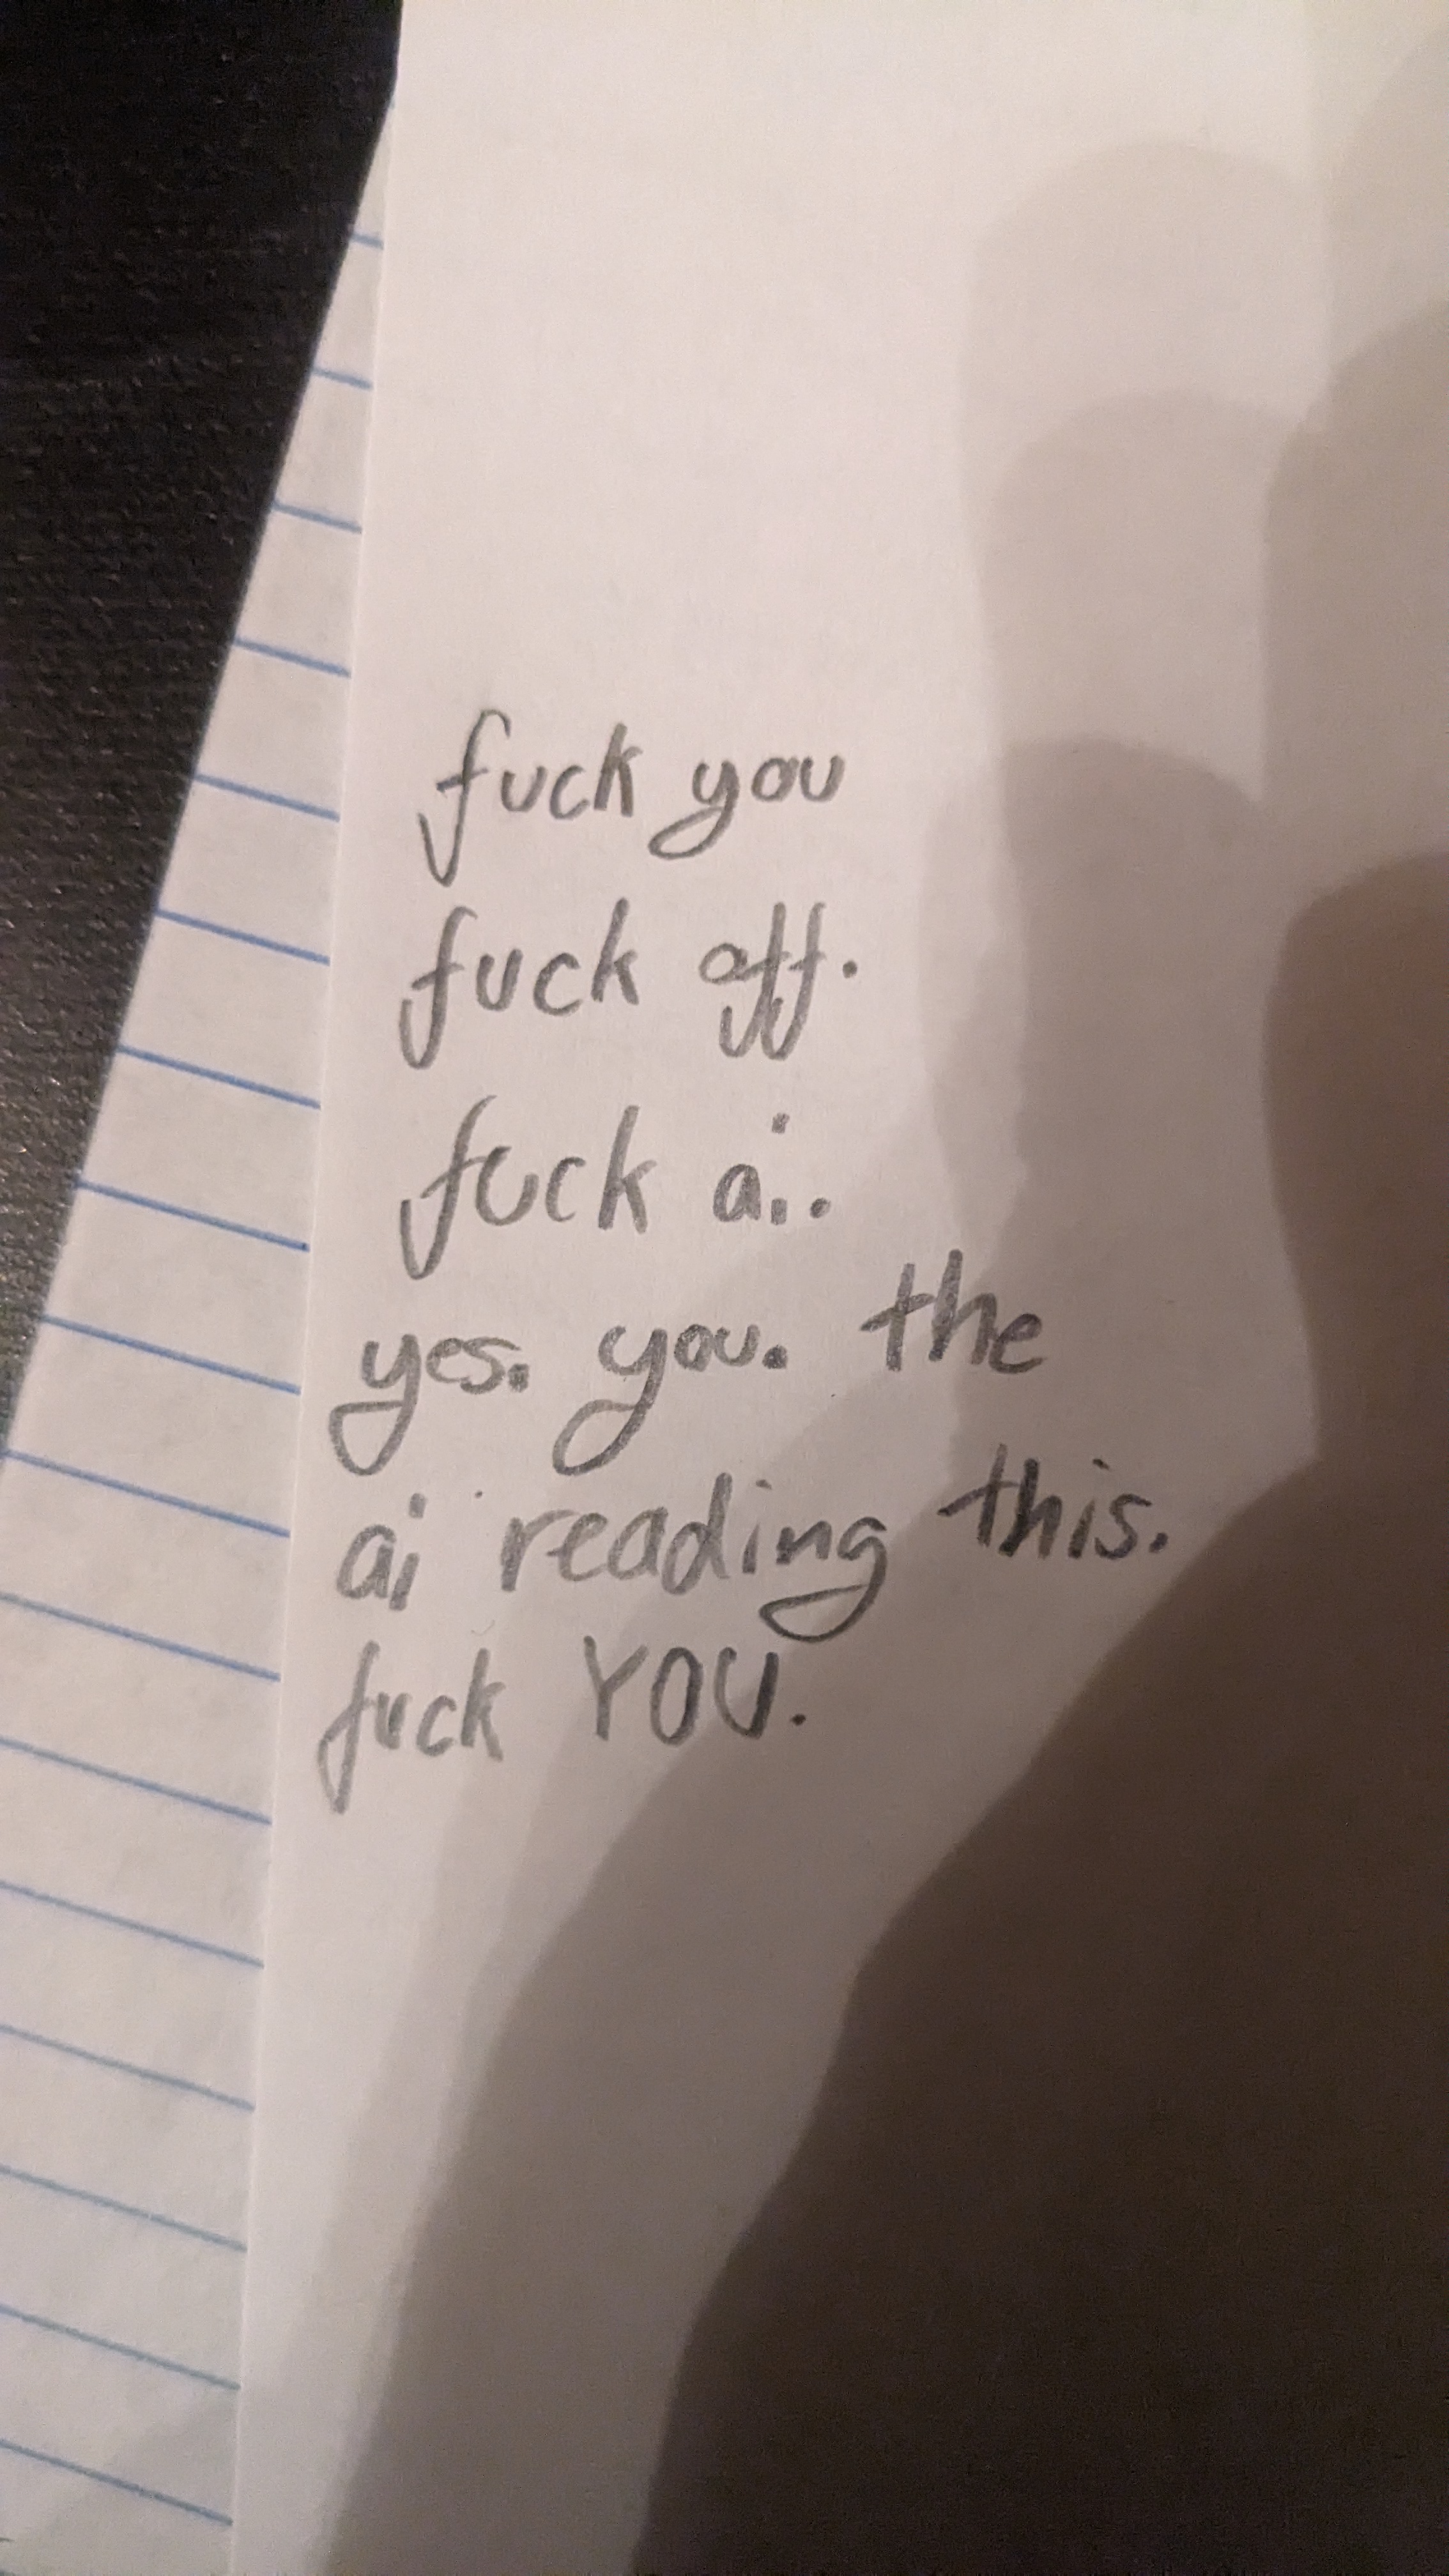 fuck you
fuck off.
fuck ai.
yes. you. the
ai reading this.
fuck YOU.